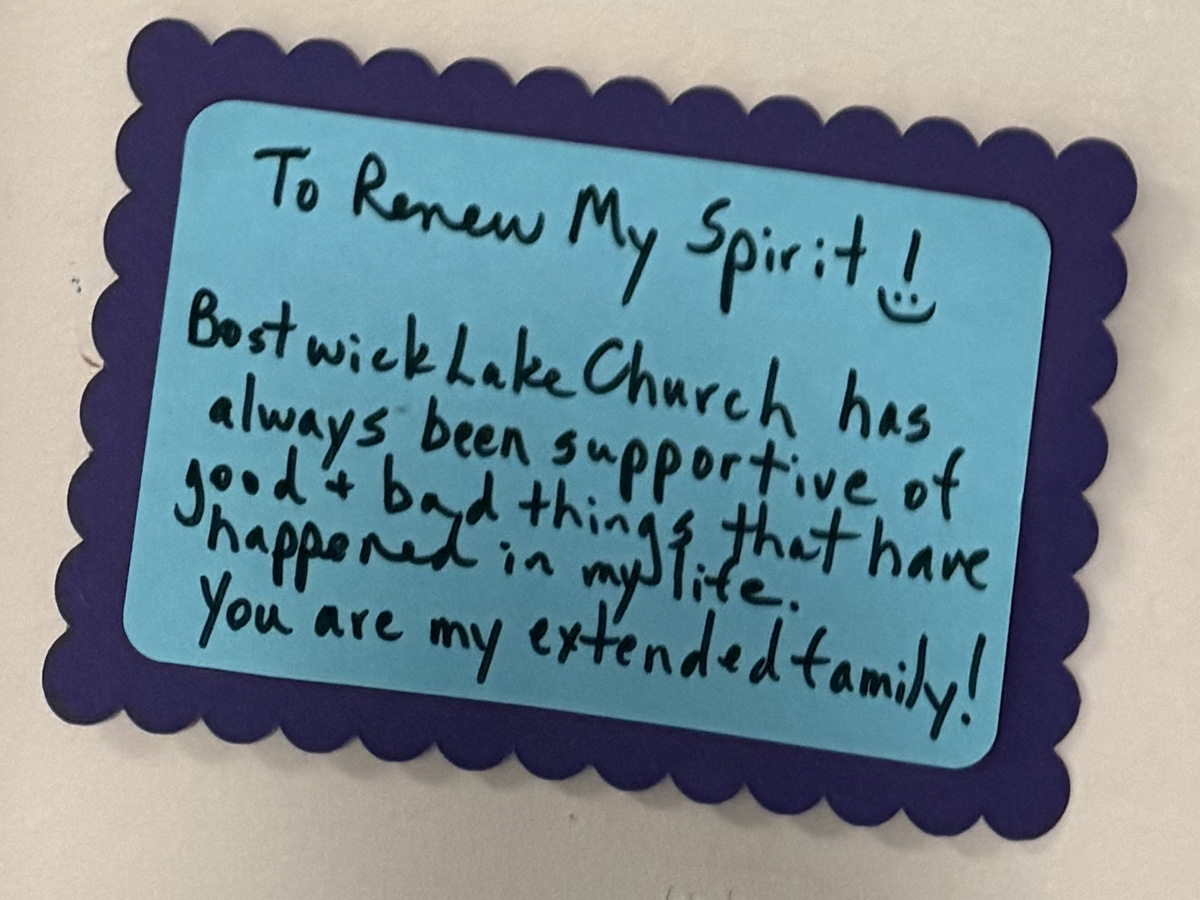 To Renew My Spirit!
Bostwick Lake Church has
always been supportive of
good + bad things that have
happened in my life.
You are my extended family!